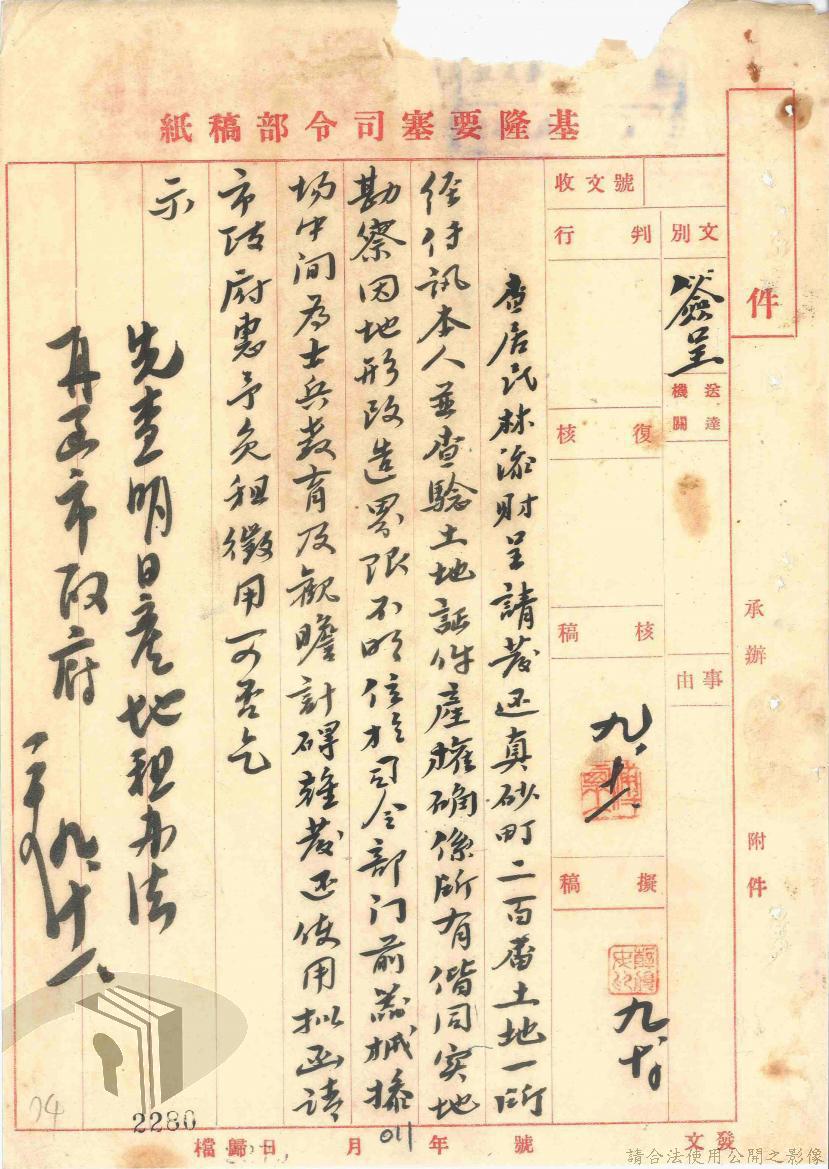 基隆要塞司令部稿紙
件
承辦
附件
文別
簽呈
送達機關
事由
收文號
判行
復核
核稿
九、十一
擬稿
九、十
查居民林添財呈請發还真砂町二百番土地一所
經付訊本人並查驗土地証件產權确係所有偕同实地
勘察因地形改造界限不明位於司令部门前器械操
场中间為士兵教育及觀瞻計碍難发还使用拟函請
市政府惠予免租徵用可否乞
示
先查明日產地租办法
再函市政府
九、十一、
發文
號
年
月
日歸檔
011
2280
04
請合法使用公開之影像